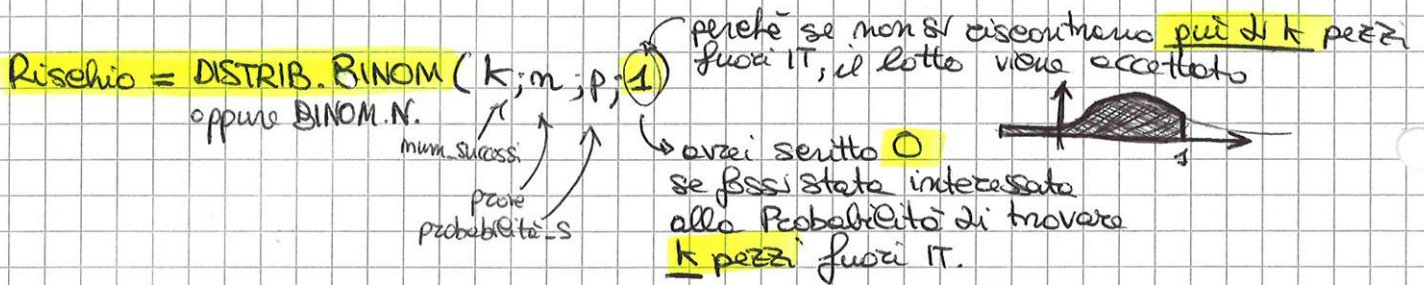 Rischio = DISTRIB. BINOM (k; n; p; 1)
oppure BINOM.N.
num_successi
prove
probabilità_s
perchè se non si riscontrano più di k pezzi
fuori IT, il lotto viene accettato
1
avrei scritto 0
se fossi stata interessata
alla Probabilità di trovare
k pezzi fuori IT.